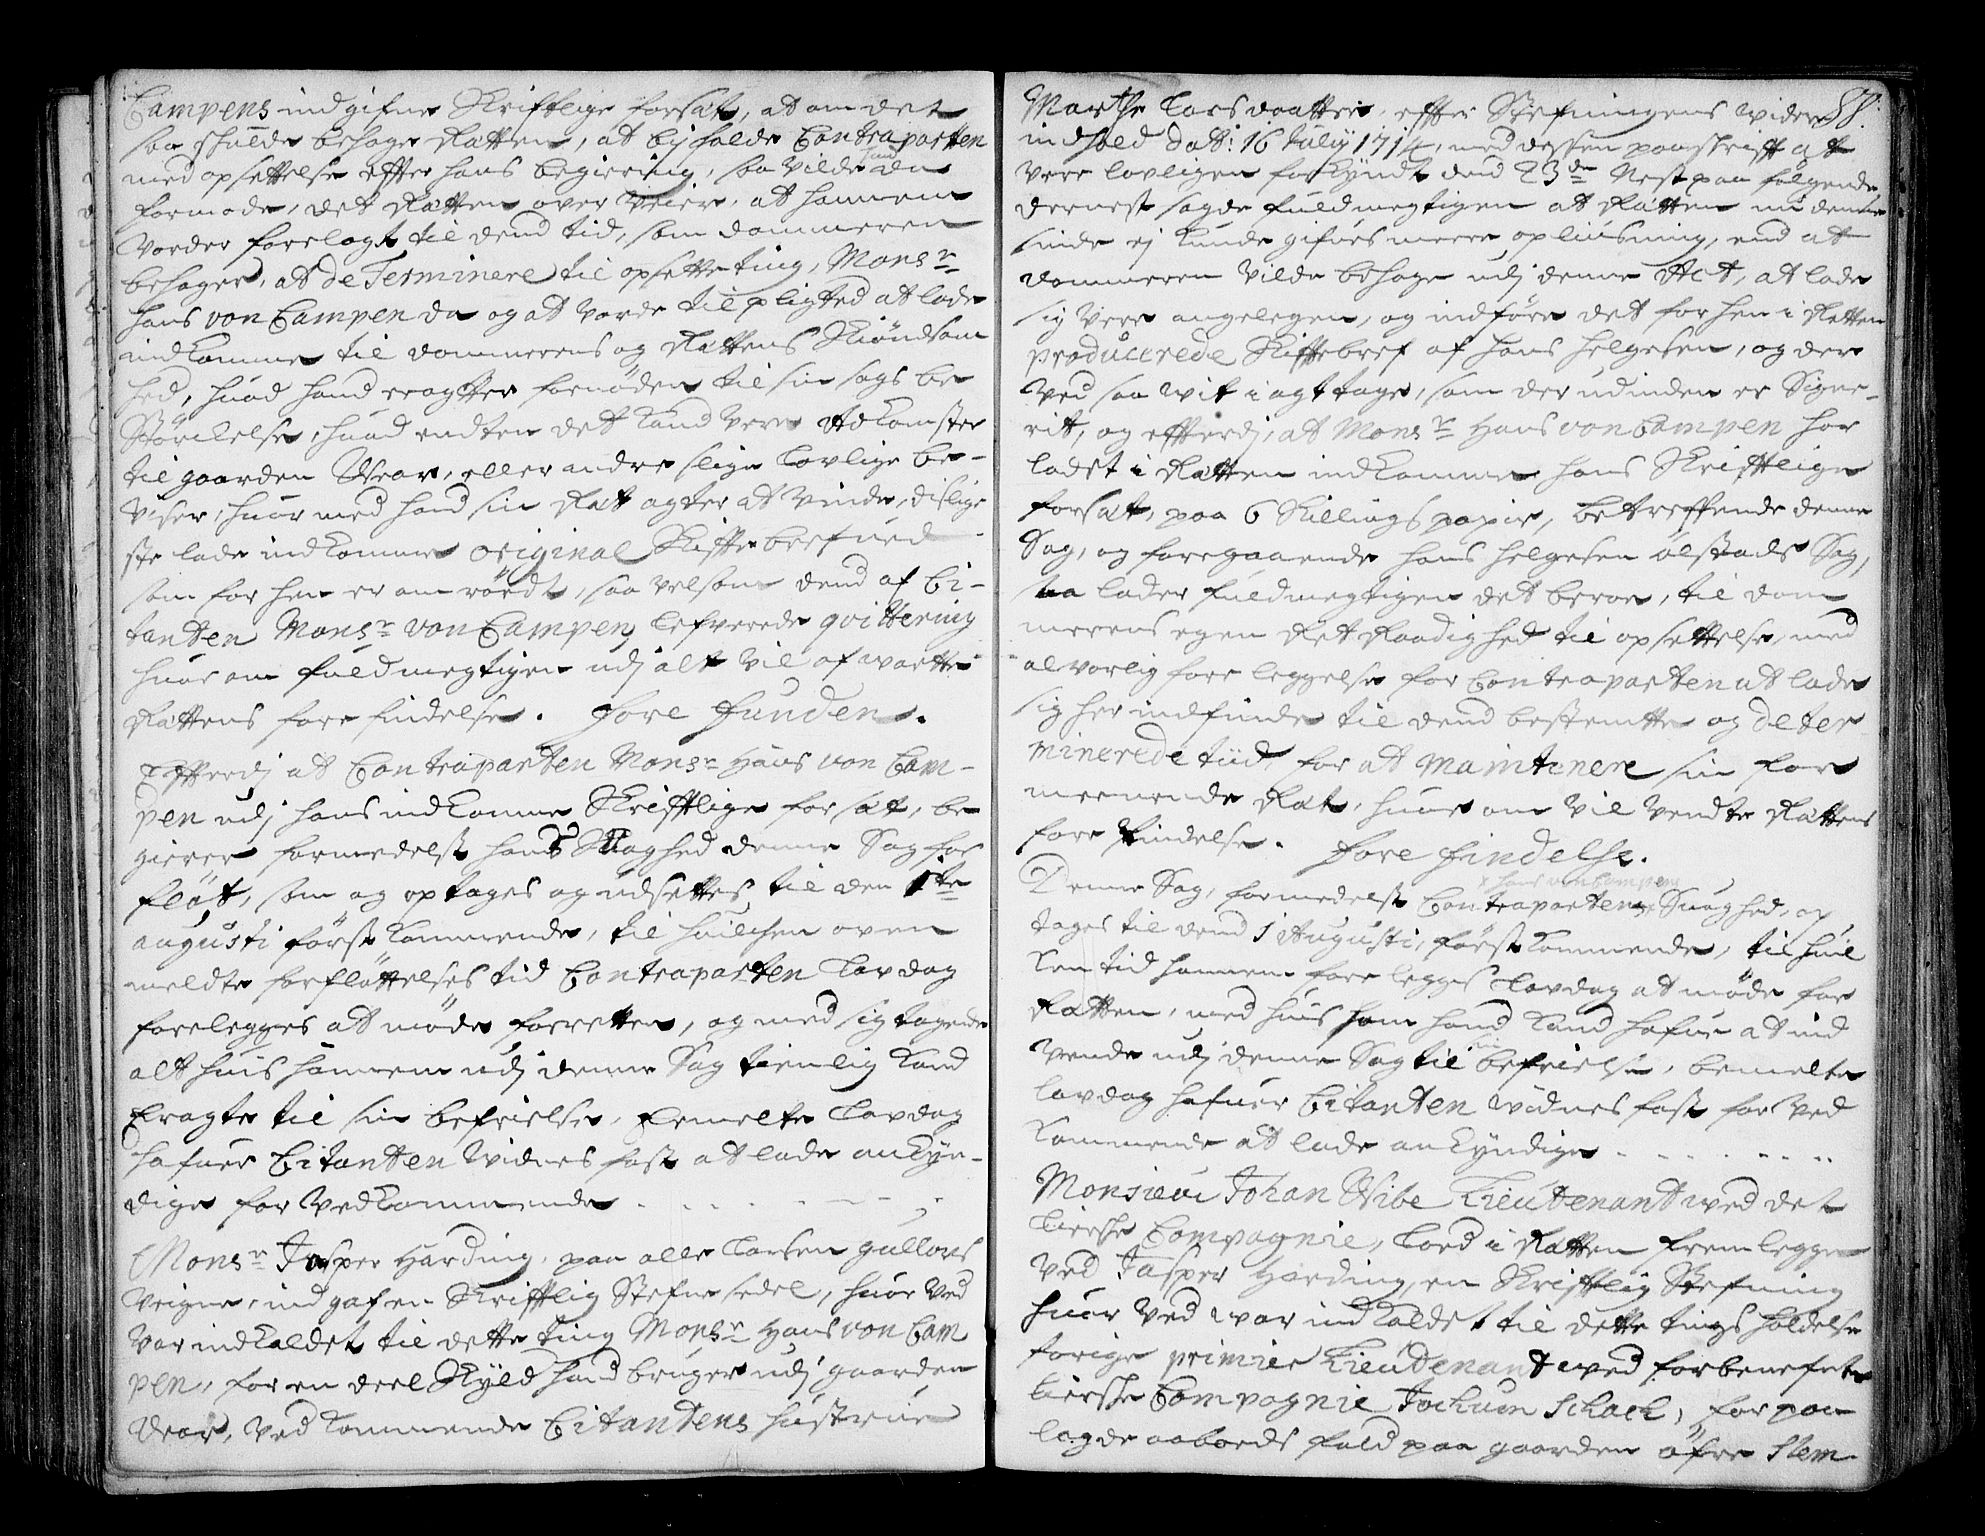 Campens indgifne Skrifftlige forsæt, at om det
saa skulde behage Rætten, at bifalde Contraparten
med opsettelse effter hans begiering, saa vilde hand da
formode, det Rætten over veier, at hannem
vorder forelagt til dend tid, som dommeren
behager, at de Terminere til opsette ting, Monsr
Hans von Campen da og at vorde tilpligted at lade
indkomme til dommerens og Rættens Skiøndsom
hed, huad hand eragter fornøden til sin sags be
störckelse, huad endten det kand vere Adkomster
til gaarden Stear, eller andre slige Lovlige be-
viser, huor med hand sin Ræt agter at vinde, dislige
ste lade indkomme original Skifftebrefued
som for hen er om rördt, saa velsom dend af Ci-
tanten Monsr von Campen lefverede qvittering
huor om fuldmegtigen udj alt vil afwarte
Rættens fore findelse. Fore funden.
Effterdj at Contraparten Monsr Hans von Cam-
pen udj hans indkomne Skrifftlige forsæt, be
gierer formedelst hans Suaghed denne Sag for
fløt, som og optages og udsettes til den 1te
augusti først kommende, til huilchen oven
meldte forflöttelses tid Contraparten Lavdag
forelegges at möde for retten, og med sig tagende
alt huis hannem udj denne Sag tienlig kand
eragte til sin befrielse, bemelte Lavdag
hafuer Citanten Vidnes fast at lade ankyn-
dige for vedkommende
Monsr Jasper Harding, paa alle Larsen Gullovs
veigne, indgaf en Skrifftlig Stefne sedel, huor ved
var indkaldet til dette ting Monsr Hans von Cam
pen, for en deel Skyld hand bruger udj gaarden
Stear, ved kommende Citantens hustrue
Marthe Larsdaatter, effter Stefningens vider
indhold dat: 16 July 1714, med dessen paaskrifft at
vere lovligen forkyndt dend 23de Nest paa følgende
dernest sagde fuldmegtigen at Rætten nu denne
sinde ej kunde gifues meere oplüsning, end at
dommeren vilde behage udj denne Act, at lade
sig vere angelegen, og indføre det for hen i Rætten
producerede Skiftebref af Hans Helgesen, og der
ved saa vit i agt tage, som der udinden er Signe-
rit, og effterdj, at Monsr Hans von Campen har
ladet i Rætten indkomme hans Skrifftlige
forsæt, paa 6 Skillings papir, betreffende denne
Sag, og foregaaende Hans Helgesen ølstads Sag,
saa lader fuldmegtigen det beroe, til dom
merens egen Ret Raadighed til opsettelse, med
alvorlig fore leggelse for Contraparten at lade
sig her indfinde til dend bestemte og deter
minerede tiid, for at maintenere sin for
meenende Ræt, huor om vil vendte Rættens
fore findelse. Fore findelse.
Denne Sag, formedelst Contrapartens x Hans von Campens Suaghed, op
tages til dend 1 Augusti, først kommende, til huil
ken tid hannem fore legges Lavdag at möde for
Rætten, med huis som hand kand hafue at ind
vende udj denne Sag til sin befrielse, bemelte
lavdag hafuer Citanten Vidnes fast for ved
kommende at lade ankyndige
Monsieur Johan Wibe Lieutenant ved det
Lierske Compagnie, Loed i Rætten fremlegge
ved Jasper Harding, en Skrifftlig Stefning
huor ved war indkaldet til dette tings holdelse
forige primier Lieutenant ved forbenefnte
Lierske Compagnie Jochum Schach, for paa
lagde aaboeds fald paa gaarden öfre Slem-